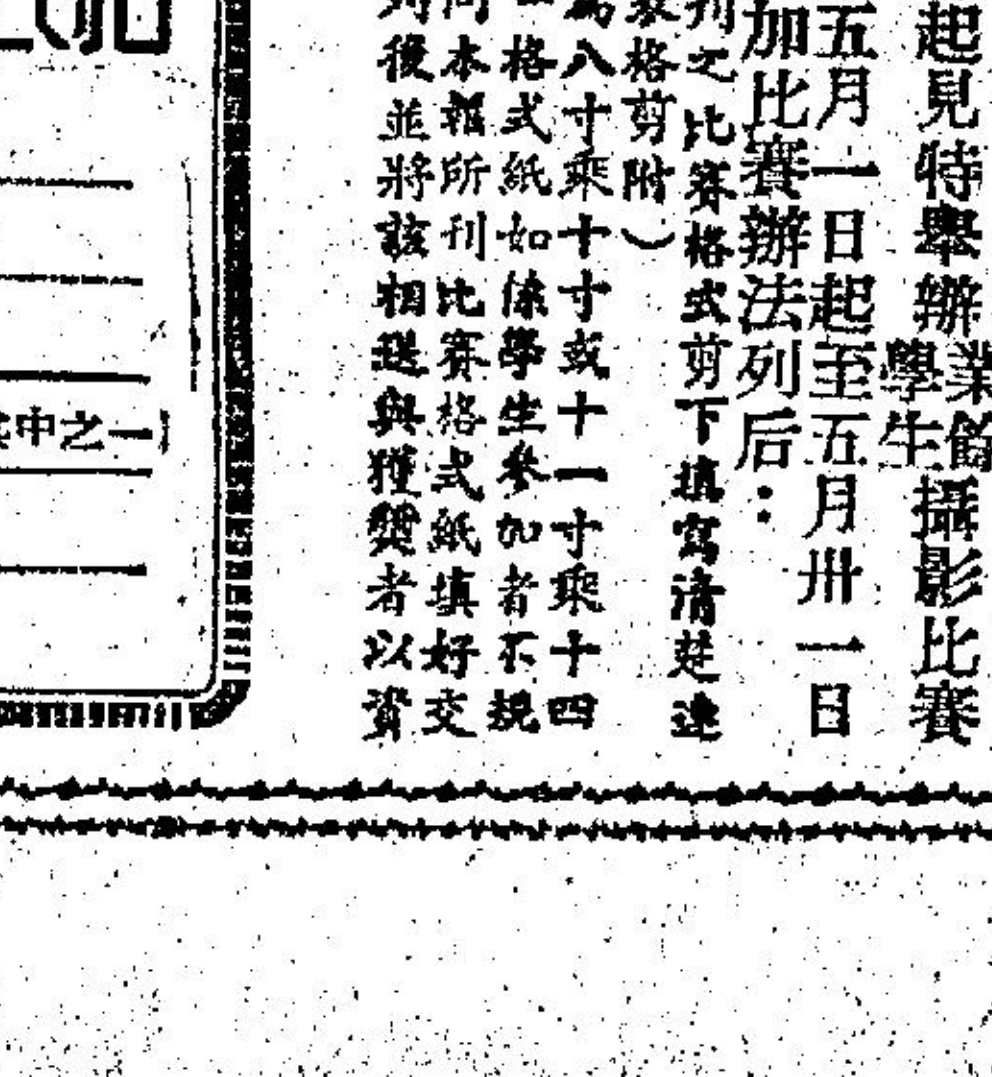 起見特舉辦業餘學生攝影比賽
五月一日起至五月卅一日
加比賽辦法列后：
刊之比賽格式剪下填寫清楚連
表格剪附）
為八寸乘十寸或十一寸乘十四
格式紙如係學生參加者不規
同本報所刊比賽格式紙填好交
列後並將該相送與獲獎者以資
中之一】